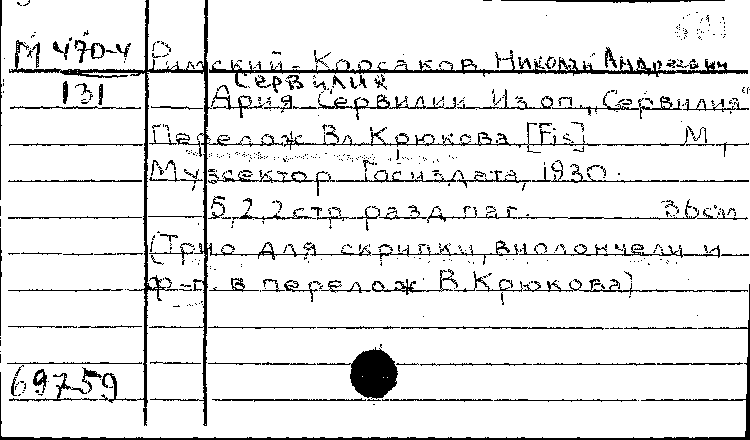 М 470-4 Римский-Корсаков, Николай Андреевич
131 Сервилия
Ария Сервилии Из оп. „Сервилия"
Перелож Вл. Крюкова. [Fis] М.,
Музсектор Госиздата, 1930.
5,2,2 стр. разд. паг. 36см
(Трио для скрипки, виолончели и
ф-п. в перелож В. Крюкова)
69759